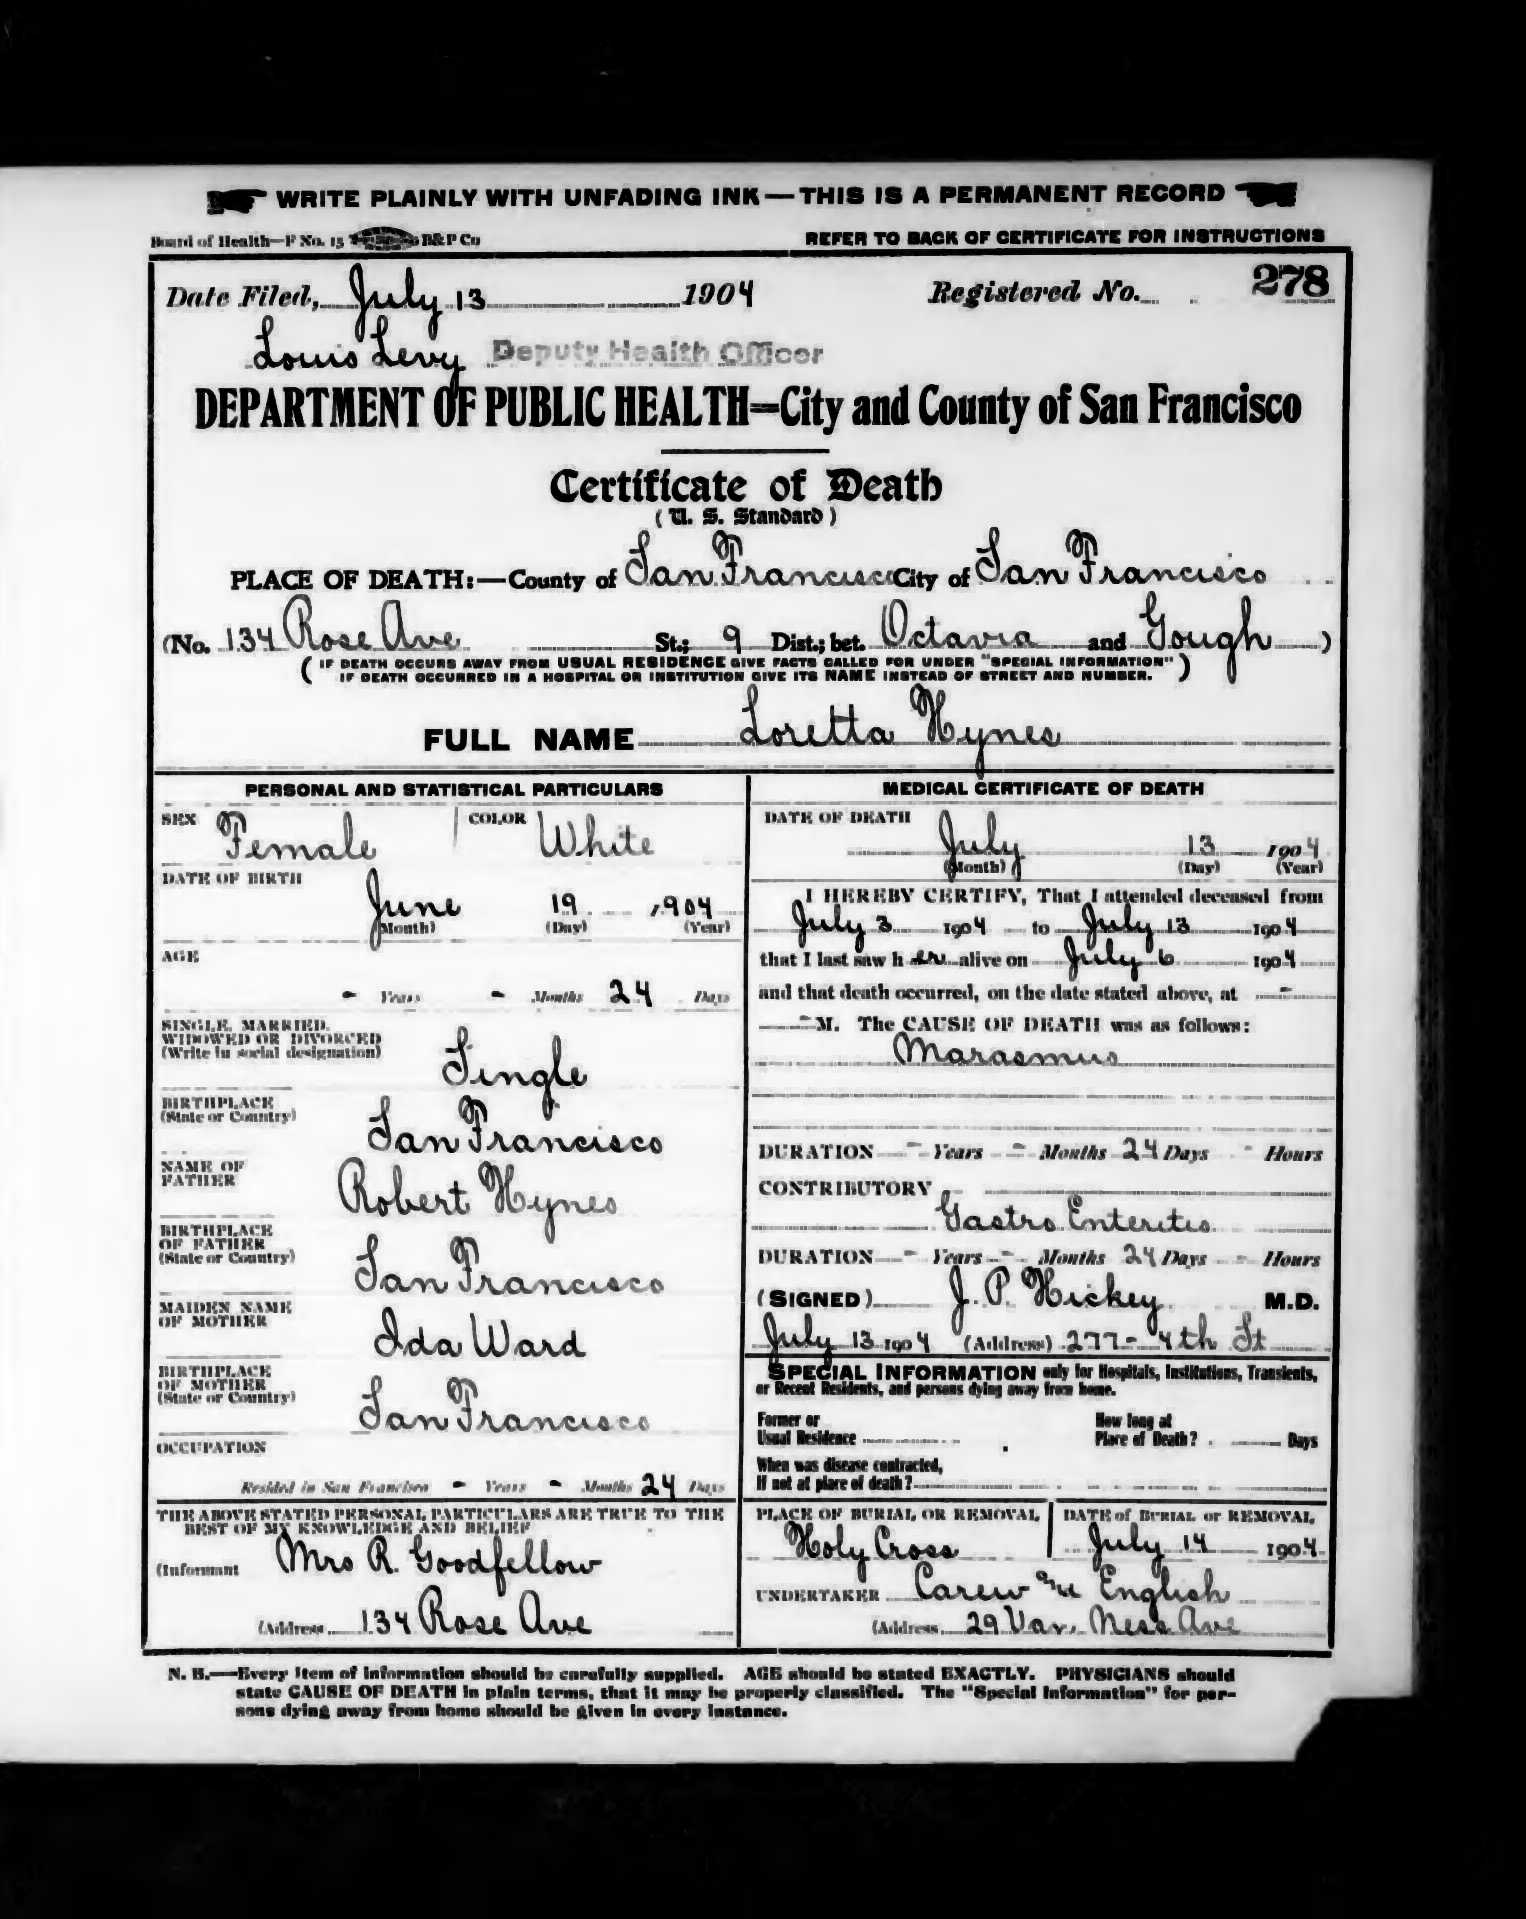 WRITE PLAINLY WITH UNFADING INK—THIS IS A PERMANENT RECORD
Board of Health—F No. 15 B&P Co
REFER TO BACK OF CERTIFICATE FOR INSTRUCTIONS
Date Filed, July 13 1904 Registered No. 278
Louis Levy Deputy Health Officer
DEPARTMENT OF PUBLIC HEALTH=City and County of San Francisco
Certificate of Death
(U. S. Standard)
PLACE OF DEATH:—County of San Francisco City of San Francisco
(No. 134 Rose Ave St.; 9 Dist.; bet. Octavia and Gough )
( IF DEATH OCCURS AWAY FROM USUAL RESIDENCE GIVE FACTS CALLED FOR UNDER "SPECIAL INFORMATION" )
IF DEATH OCCURRED IN A HOSPITAL OR INSTITUTION GIVE ITS NAME INSTEAD OF STREET AND NUMBER.
FULL NAME Loretta Hynes
PERSONAL AND STATISTICAL PARTICULARS
SEX Female COLOR White
DATE OF BIRTH
June 19 1904
(Month) (Day) (Year)
AGE
- Years - Months 24 Days
SINGLE, MARRIED,
WIDOWED OR DIVORCED
(Write in social designation)
Single
BIRTHPLACE
(State or Country)
San Francisco
NAME OF
FATHER
Robert Hynes
BIRTHPLACE
OF FATHER
(State or Country)
San Francisco
MAIDEN NAME
OF MOTHER
Ida Ward
BIRTHPLACE
OF MOTHER
(State or Country)
San Francisco
OCCUPATION
Resided in San Francisco - Years - Months 24 Days
THE ABOVE STATED PERSONAL PARTICULARS ARE TRUE TO THE
BEST OF MY KNOWLEDGE AND BELIEF
(Informant Mrs R. Goodfellow
(Address 134 Rose Ave
MEDICAL CERTIFICATE OF DEATH
DATE OF DEATH
July 13 1904
(Month) (Day) (Year)
I HEREBY CERTIFY, That I attended deceased from
July 3 1904 to July 13 1904
that I last saw her alive on July 6 1904
and that death occurred, on the date stated above, at -
- M. The CAUSE OF DEATH was as follows:
Marasmus
DURATION - Years - Months 24 Days - Hours
CONTRIBUTORY
Gastro Enteritis
DURATION - Years - Months 24 Days - Hours
(SIGNED) J. P. Hickey M.D.
July 13 1904 (Address) 277 - 4th St
SPECIAL INFORMATION only for Hospitals, Institutions, Transients,
or Recent Residents, and persons dying away from home.
Former or
Usual Residence
How long at
Place of Death? Days
When was disease contracted,
If not at place of death?
PLACE OF BURIAL OR REMOVAL
Holy Cross
DATE of BURIAL or REMOVAL
July 14 1904
UNDERTAKER Carew and English
(Address 29 Van Ness Ave
N. B.—Every item of information should be carefully supplied. AGE should be stated EXACTLY. PHYSICIANS should
state CAUSE OF DEATH in plain terms, that it may be properly classified. The "Special Information" for per-
sons dying away from home should be given in every instance.